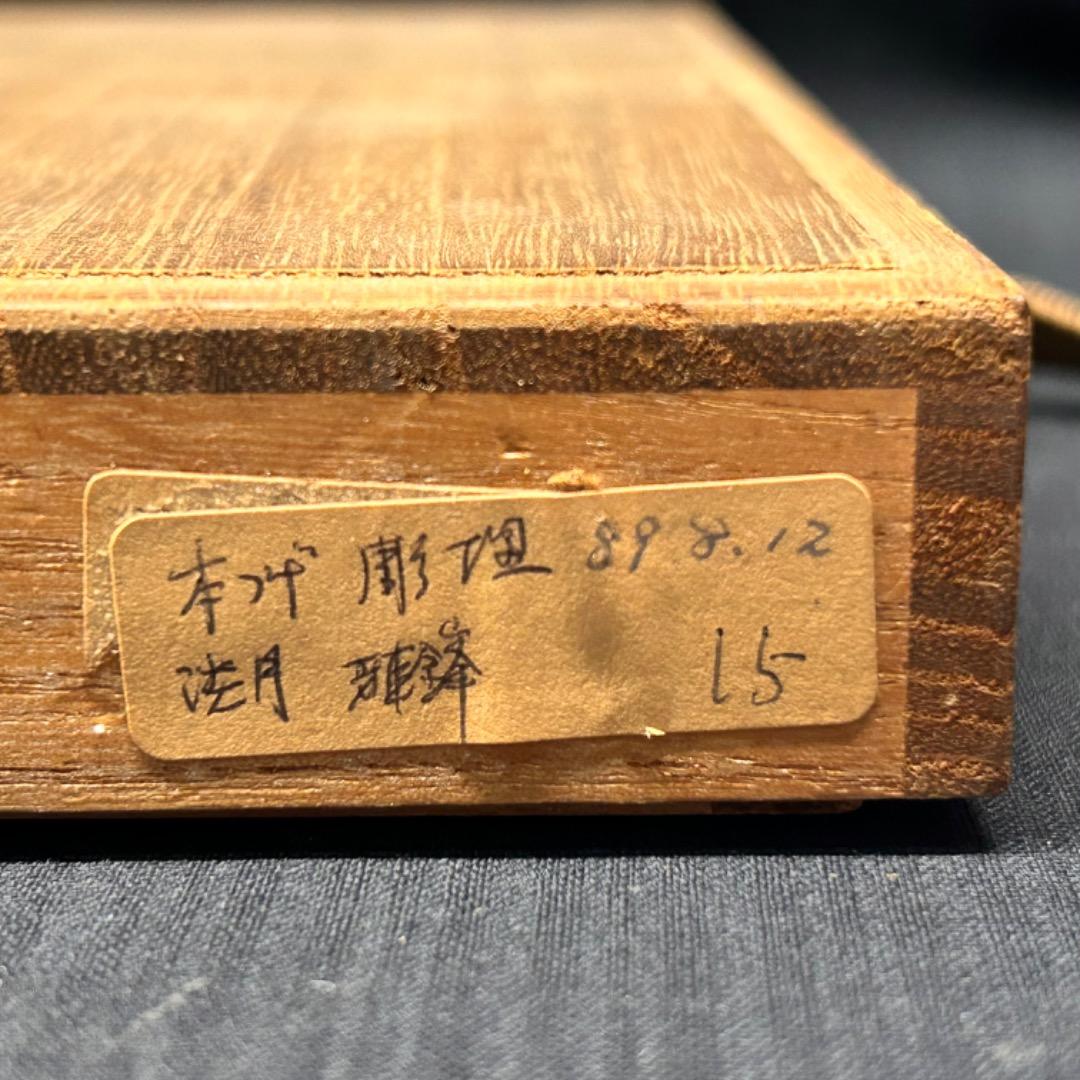 本つげ 彫埋 89.8.12
法月 雅鋒 15